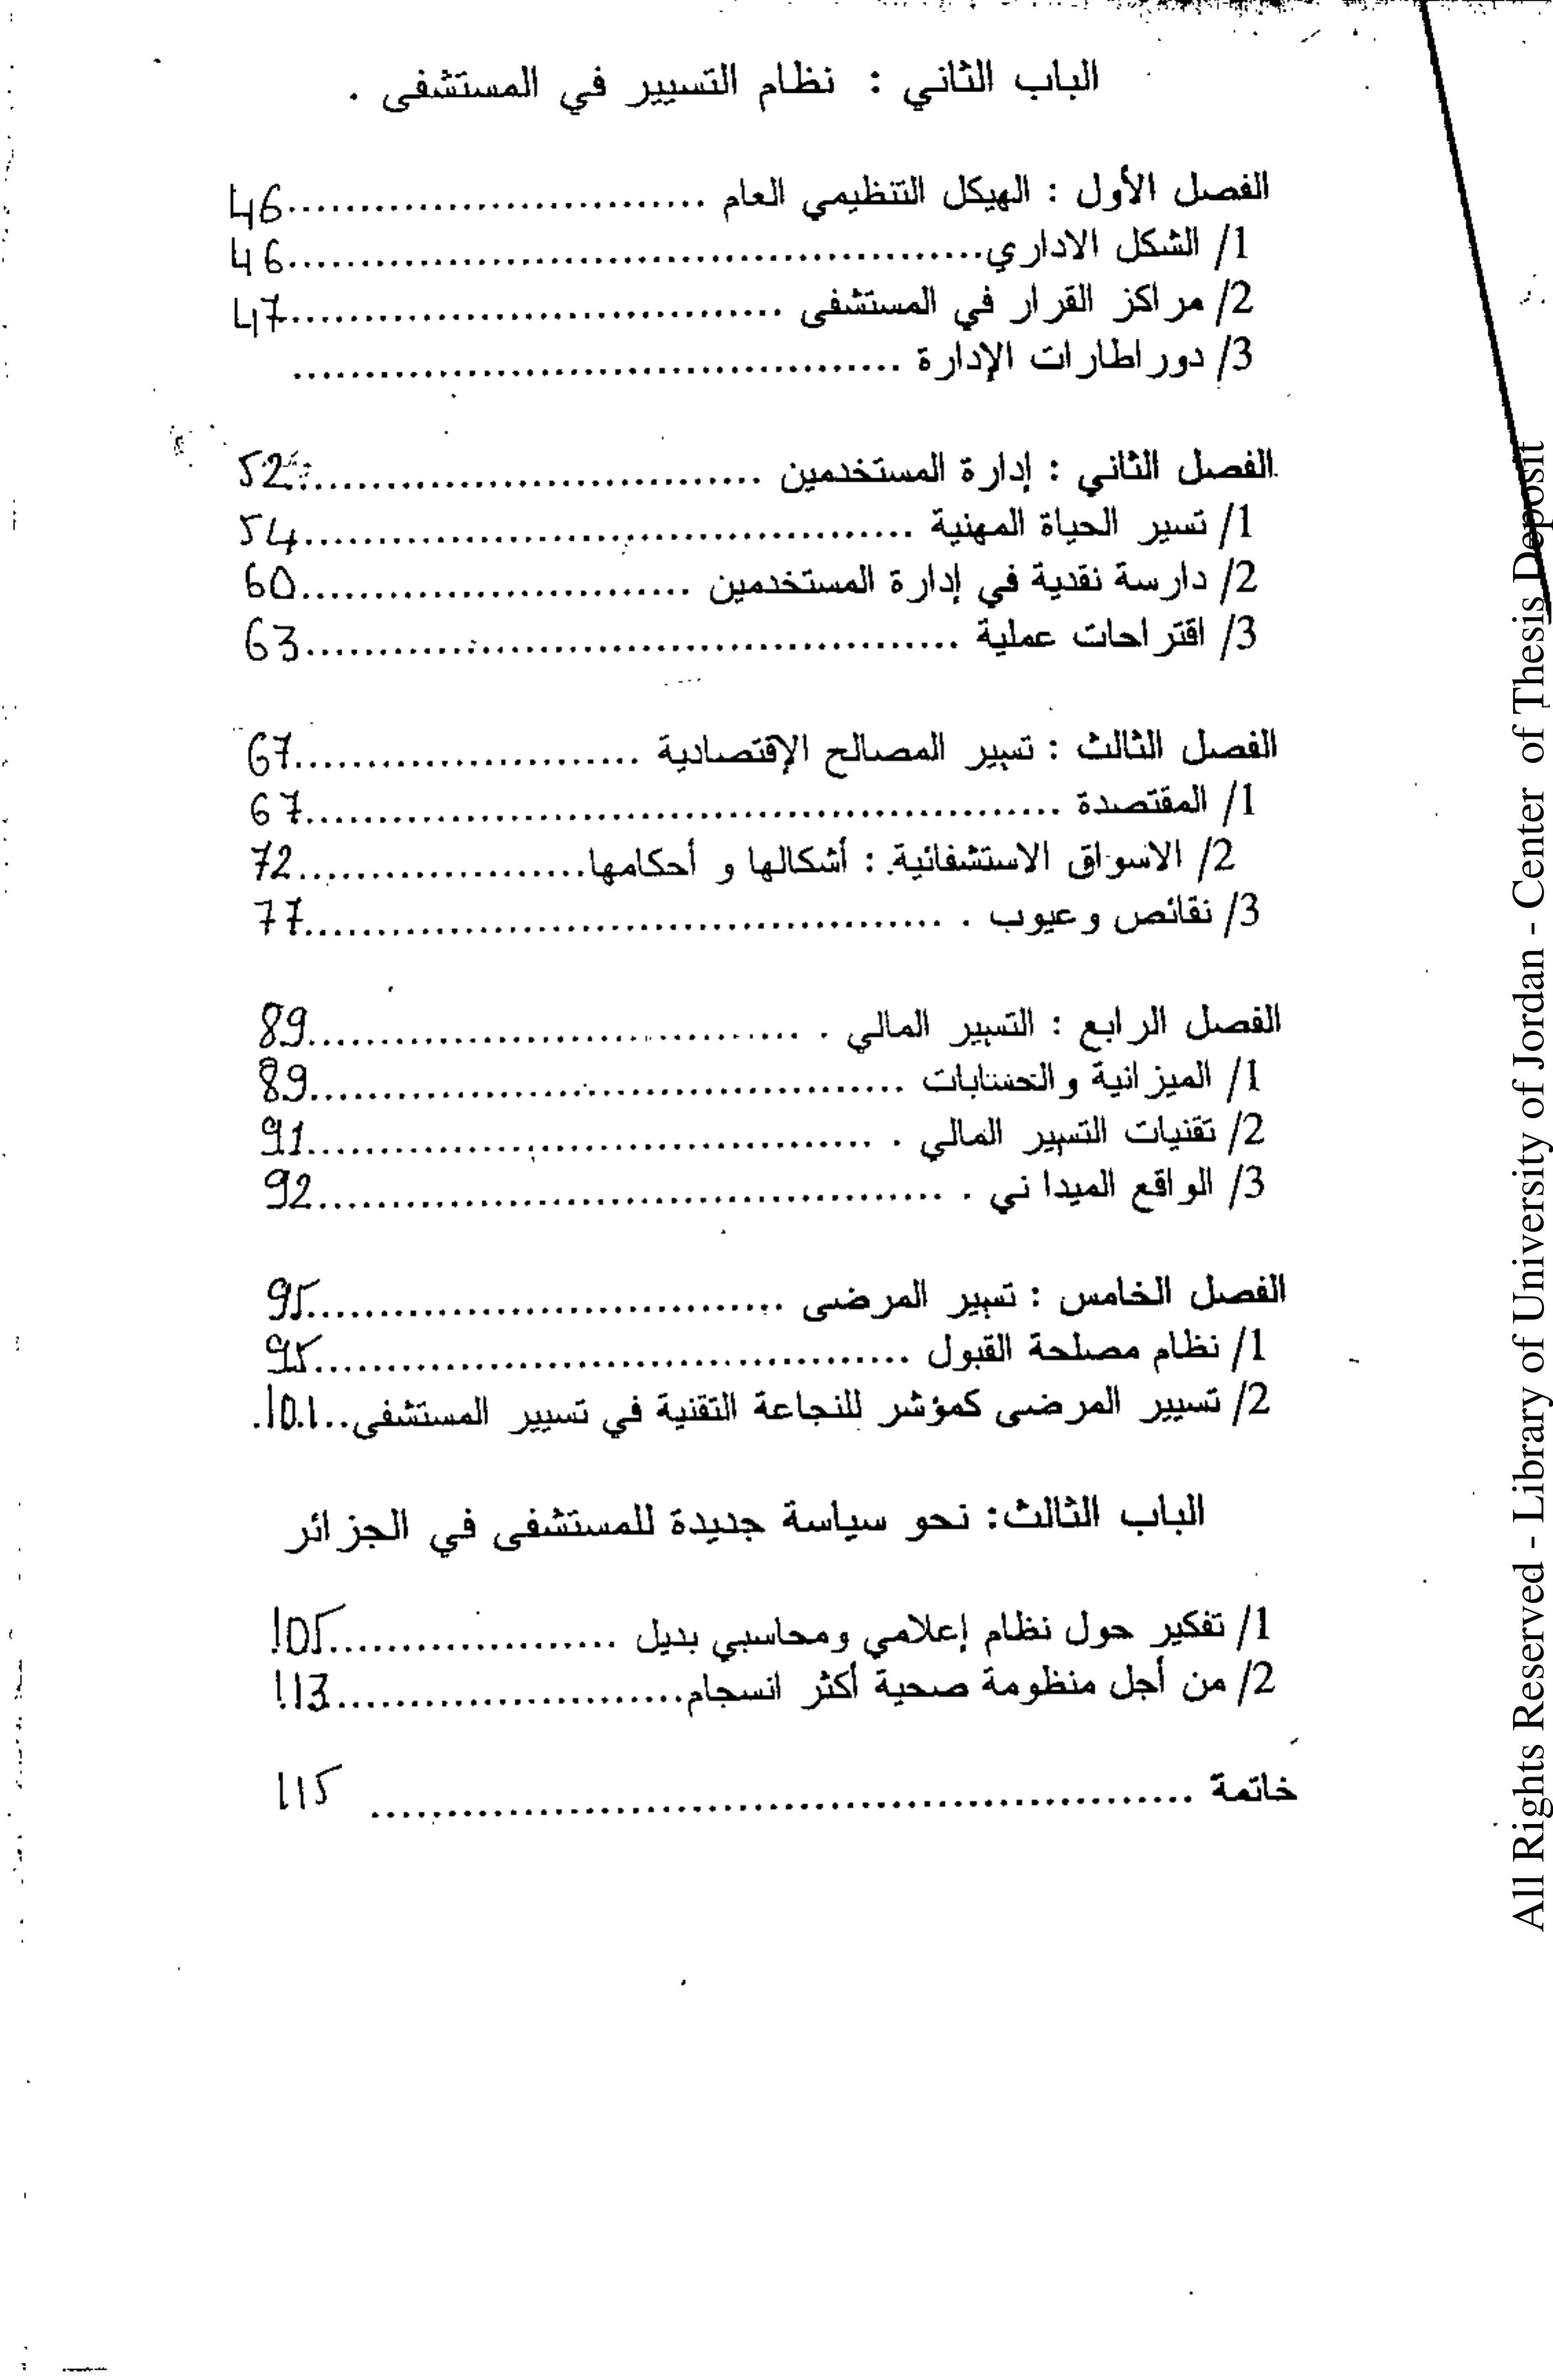 الباب الثاني : نظام التسيير في المستشفى .
الفصل الأول : الهيكل التنظيمي العام ............................. 46
1/ الشكل الاداري................................................ 46
2/ مراكز القرار في المستشفى .................................. 47
3/ دور اطارات الإدارة ..........................................
الفصل الثاني : إدارة المستخدمين ............................... 52
1/ تسير الحياة المهنية .......................................... 54
2/ دارسة نقدية في إدارة المستخدمين ........................... 60
3/ اقتراحات عملية ............................................. 63
الفصل الثالث : تسيير المصالح الإقتصادية ........................ 67
1/ المقتصدة .................................................... 67
2/ الاسواق الاستشفائية : أشكالها و أحكامها.................... 72
3/ نقائص وعيوب . ............................................ 77
الفصل الرابع : التسيير المالي . .................................. 89
1/ الميزانية والحسابات ......................................... 89
2/ تقنيات التسيير المالي . ....................................... 91
3/ الواقع الميدا ني . ........................................... 92
الفصل الخامس : تسيير المرضى ................................. 95
1/ نظام مصلحة القبول ......................................... 95
2/ تسيير المرضى كمؤشر للنجاعة التقنية في تسيير المستشفى.. 101
الباب الثالث: نحو سياسة جديدة للمستشفى في الجزائر
1/ تفكير حول نظام إعلامي ومحاسبي بديل .................... 105
2/ من أجل منظومة صحية أكثر انسجام........................ 113
خاتمة ......................................................... 115
All Rights Reserved - Library of University of Jordan - Center of Thesis Deposit